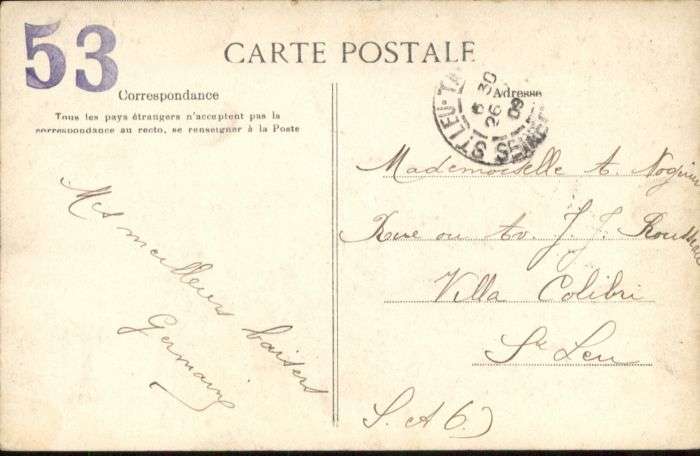 53
CARTE POSTALE
Correspondance
Tous les pays étrangers n'acceptent pas la
correspondance au recto, se renseigner à la Poste
Adresse
ST LEU-TA
6 30
26
09
SEINE-ET
Mes meilleurs baisers
Germaine
Mademoiselle A.
Rue ou Av. J. J. Rousseau
Villa Colibri
St Leu
S. &